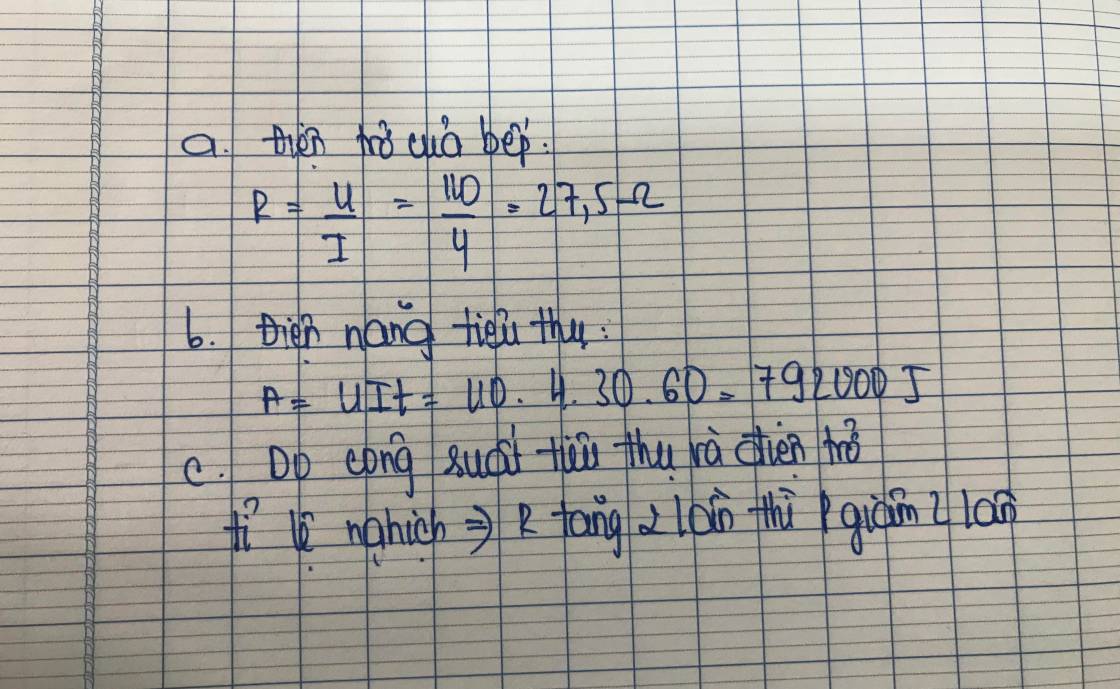 a. Điện trở của bếp:
R = U/I = 110/4 = 27,5 Ω
b. Điện năng tiêu thụ:
A = UIt = 110. 4. 30. 60 = 792000 J
c. Do công suất tiêu thụ và điện trở
tỉ lệ nghịch ⇒ R tăng 2 lần thì P giảm 2 lần